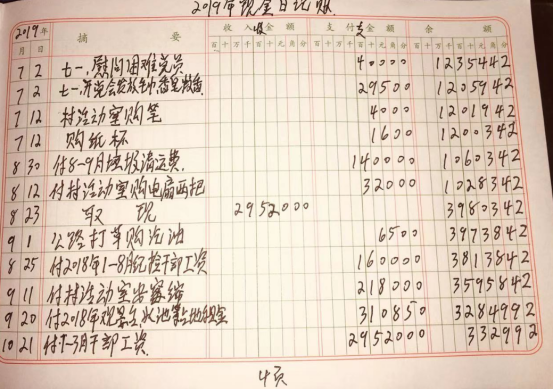 2019年现金日记账
2019年 摘要 收入金额 支付金额 余额
月 日 百十万千百十元角分 百十万千百十元角分 百十万千百十元角分
7 2 七一.慰问困难党员 40000 1235442
7 2 七一. 29500 1205942
7 12 村活动室购笔 4000 1201942
7 12 购纸杯 1600 1200342
8 30 付8-9月垃圾清运费. 140000 1060342
8 12 付村活动室购电扇两把 32000 1028342
8 23 取 现 2952000 3980342
9 1 公路打草购汽油 6500 3973842
8 25 付2018年1-8月纪检干部工资 160000 3813842
9 11 付村活动室安窗帘 218000 3595842
9 20 付2018年观景台水池等占地租金 310850 3284992
10 21 付1-3月干部工资. 2952000 332992
4页